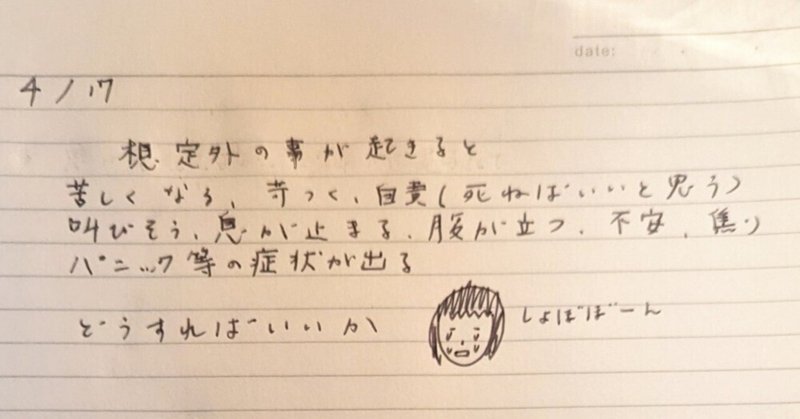 date:
4/17
想定外の事が起きると
苦しくなる、苛つく、自責(死ねばいいと思う)
叫びそう、息が止まる、腹が立つ、不安、焦り
パニック等の症状が出る
どうすればいいか
しょぼぼーん